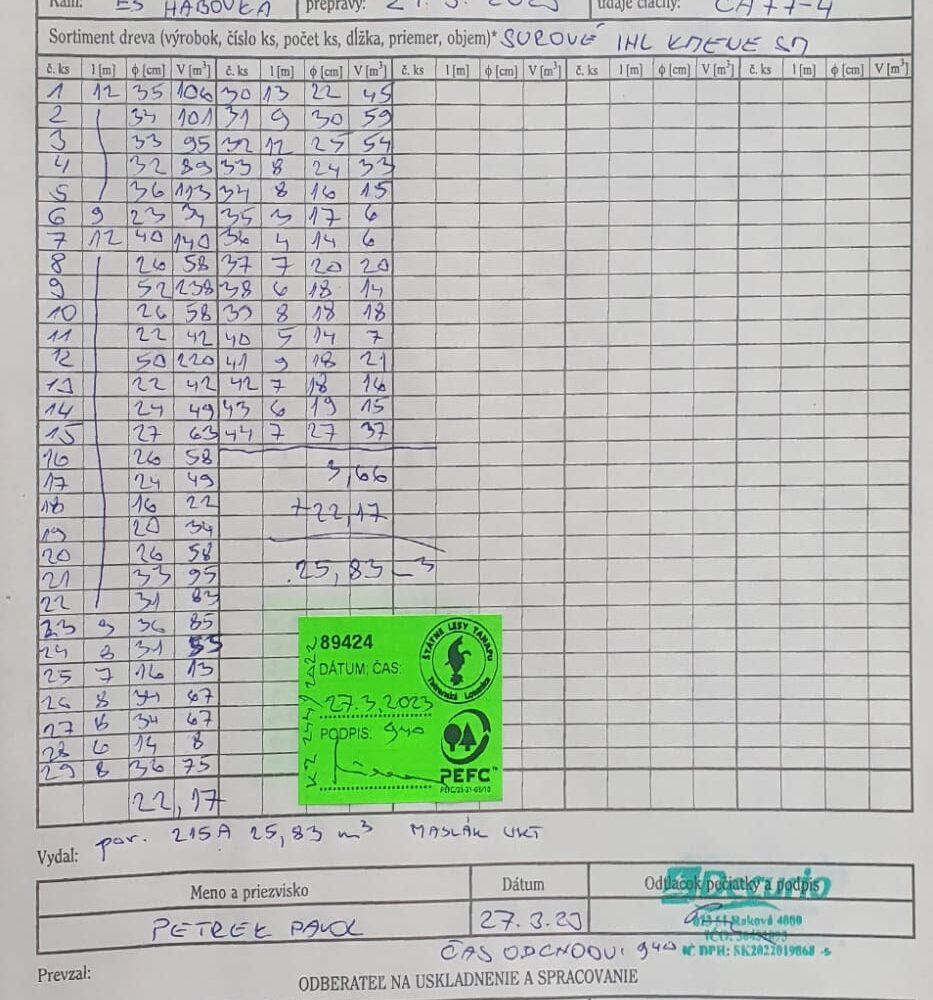 prepravy: 27.3.2023
ES HABOVKA
údaje značky: CA 77-4
Sortiment dreva (výrobok, číslo ks, počet ks, dĺžka, priemer, objem)* SUROVÉ IHL KMENE SM
č. ks l [m] ϕ [cm] V [m³] č. ks l [m] ϕ [cm] V [m³] č. ks l [m] ϕ [cm] V [m³] č. ks l [m] ϕ [cm] V [m³] č. ks l [m] ϕ [cm] V [m³]
1 12 35 106 30 13 22 45
2 34 101 31 9 30 59
3 33 95 32 12 25 54
4 32 89 33 8 24 33
5 36 113 34 8 16 15
6 9 23 34 35 3 17 6
7 12 40 140 36 4 14 6
8 26 58 37 7 20 20
9 52 238 38 6 18 14
10 26 58 39 8 18 18
11 22 42 40 5 14 7
12 50 220 41 9 18 21
13 22 42 42 7 18 16
14 24 49 43 6 19 15
15 27 63 44 7 27 37
16 26 58
17 24 49 3,66
18 16 22 +22,17
19 20 34
20 26 58 25,83 m³
21 33 95
22 31 83
23 9 36 85
24 8 31 55
25 7 16 13
26 8 34 67
27 8 34 67
28 6 14 8
29 8 36 75
22,17
89424
ŠTÁTNE LESY TANAPU
Tatranská Lomnica
DÁTUM, ČAS:
27.3.2023
PODPIS: 940
PEFC™
por. 215A 25,83 m³ MASLÁK UKT
Vydal:
Meno a priezvisko Dátum Odtlačok pečiatky a podpis
PETREK PAVOL 27.3.23
Decurio
023 51 Raková 4000
IČ DPH: SK2022019868
ČAS ODCHODU: 940
Prevzal:
ODBERATEĽ NA USKLADNENIE A SPRACOVANIE